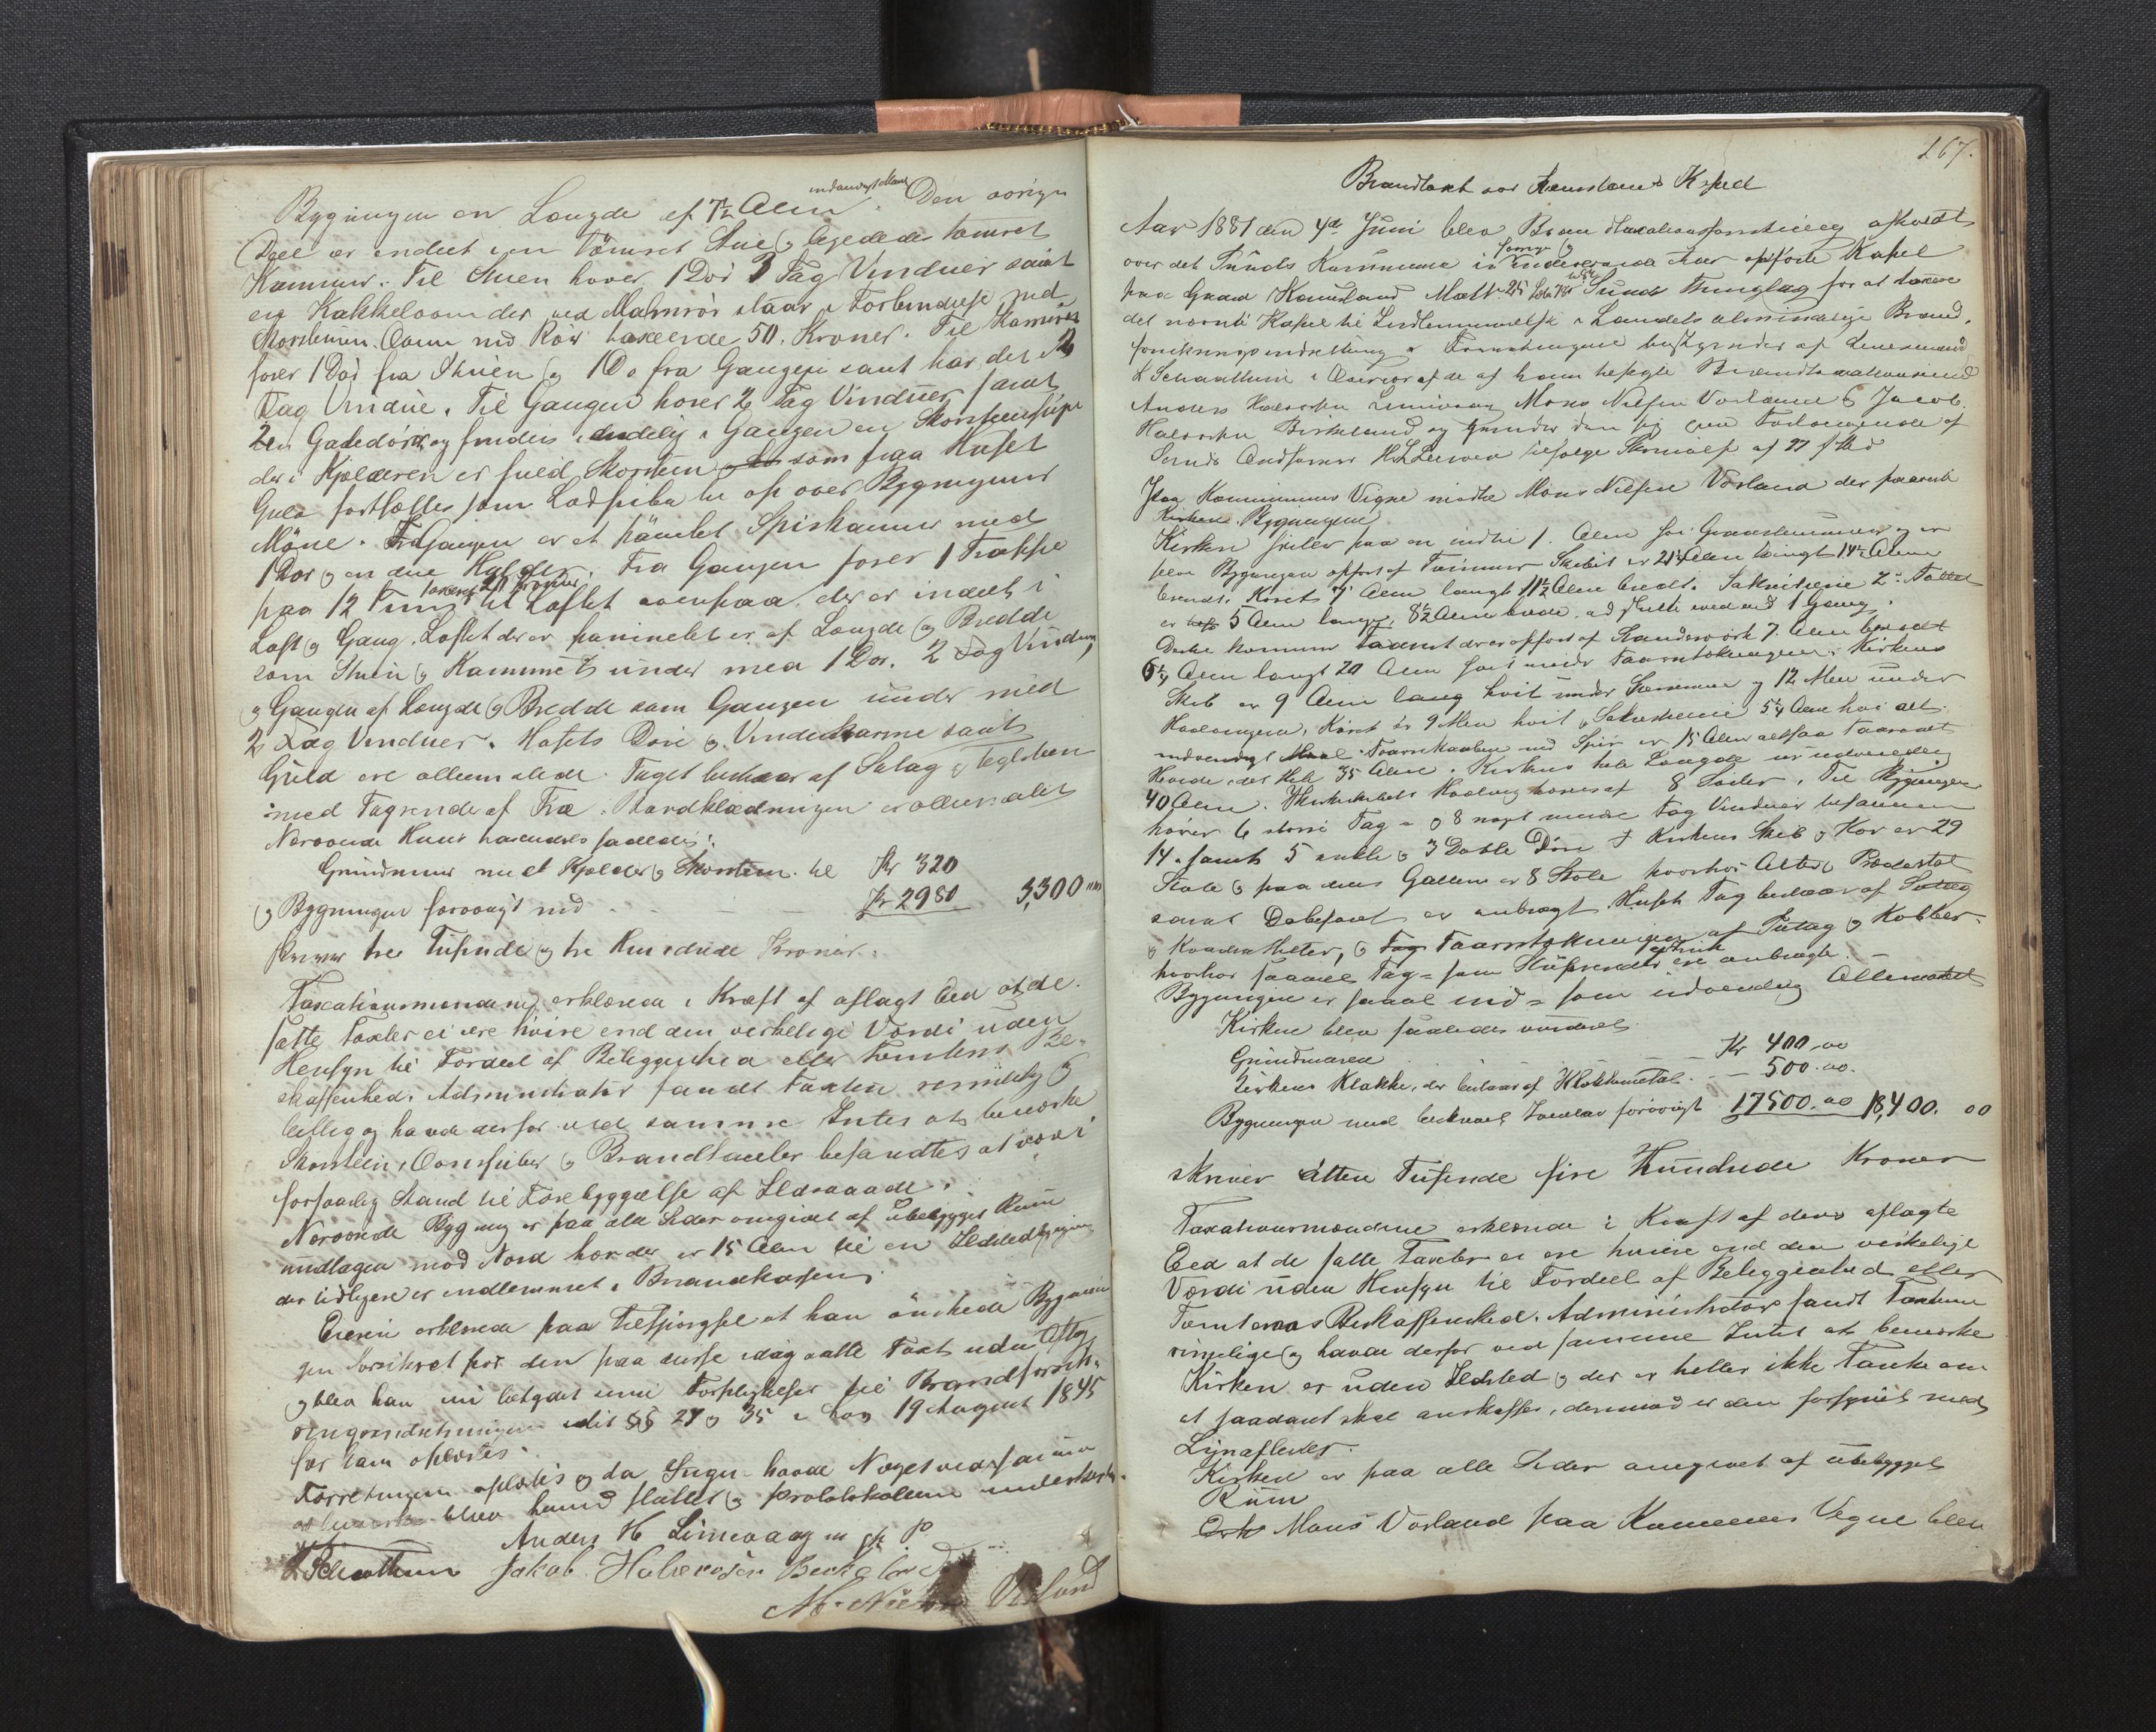 Bygningen en Længde af 7½ Alen indvendigt Maal. Den øvrige
Deel er indeelt i en tømret Stue og ligeledes tømret
Kammer. Til Stuen hører 1 Dør 3 Fag Vinduer samt
en Kakkelovn der ved Malmrør staar i Forbindelse med
Skorstenen. Ovnen med Rør taxerede 50 Kroner. Til Kammeret
fører 1 Dør fra Stuen og 1 Do fra Gangen samt har det 2
Fag Vindue. Til Gangen hører 2 Fag Vinduer samt
2 Gadedøre og findes endelig i Gangen en Skorstenspibe
der i Kjælderen er fuld Skorsten som fra Huset
Gulv fortsættes som Lodpibe til op over Bygningens
Møne. Fra Gangen er et pånelet Spiskammer med
1 Dør og en Fra Gangen fører 1 Trappe
paa 12 Trin taxeret 20 Kroner til Loftet ovenpaa der er indeelt i
Loft og Gang. Loftet der er paninelet er af Længde og Bredde
som Stuen og Kammeret under med 1 Dør, 2 Fag Vinduer
og Gangen af Længde og Bredde som Gangen under med
2 Fag Vinduer. Husets Døre og Vindukarme samt
Guld ere allemalede. Taget bestaar af Sutag og Teglsten
med Tagrender af Træ. Bordklædningen er oliemalet
Nærværende Huus taxeredes saaledes:
Grundmuur med Kjælder og Skorsten til Kr 320
og Bygningen forøvrigt med - - - Kr 2980 3,300
skriver tre Tusinde og tre Hundrede Kroner.
Taxationsmændene erklærede i Kraft af aflagt Eed at de
satte Taxter ei ere høiere end den virkelige Værdi uden
Hensyn til Fordeel af Beliggenhed eller Tomtens Be-
skaffenhed. Administrator fandt Taxten rimelig og
billig og havde derfor ved samme Intet at bemærke
Skorsteen, Ovnspiber og Brandtavler befandtes at være i
forsvarlig Stand til Forebyggelse af Ildsvaade.
Nærværende Bygning er paa alle Sider omgivet af ubebygget Rum
undtagen mod Nord hvor der er 15 Alen til en Ildstedbygning
der tidligere er indlemmet i Brandkassen
Eieren erklærede paa Tilspørgsel at han ønskede Bygnin-
gen forsikret for den paa disse idag satte Taxt uden Aftag
og blev han nu betydet sine Forpligtelser til Brandforsik-
ringsindretningen idet §§ 27 og 35 i Lov 19 August 1845
for ham oplæstes.
Forretningen oplæstes og da Ingen havde Noget ved samme
at bemærke blev hermed sluttet og Protokollen underskreven.
Anders H Limevaag m p P
L Schaathun Jakob Halversen Berkeland
M. Nielsen Vorland
267.
Brandtaxt over Kansland Kapel
Aar 1881 den 4de Juni blev Brandtaxationsforretning afholdt
over det Sunds Kommune i forrige og indeværende Aar opførte Kapel
paa Gaard Matr. 25 Sunds Thinglag for at taxere
det nævnte Kapel til Indlemmelse i Landets almindelige Brand-
forsikringsindretning. Forretningen bestyredes af Lensmand
L Schaathun i Overvær af de af ham tilsagte Brandtaxationsmænd
Anders Halvorsen Limevaag Mons Nielsen Vorland og Jacob
Halvorsen Birkeland og grunder den sig paa Forlangende af
Sunds Ordfører H. L. ifølge Skrivelse af 27 f. Md
Paa Kommunens Vegne mødte Mons Nielsen Vorland der paaviste
Bygningen
Kirken hviler paa en indtil 1 Alen høi Graasteensmuur og er
hele Bygningen opført af Tømmer. Skibet er 21¼ Alen langt 14½ Alen
bredt. Koret 7 Alen langt 11½ Alen bredt. Sakristierne 2 i Tallet
er 5 Alen lange, 8½ Alen brede, adskilte ved 1 Gang.
Derhos kommer Taarnet der er opført af Standerværk 7 Alen bredt
6½ Alen langt 20 Alen høit under Taarntækningen. Kirkens
Skib er 9 Alen høit under Rennerne og 12 Alen under
Hvælvingen, Koret er 9 Alen høit, Sakristierne 5¼ Alen høie alt
indvendigt Maal. Taarnkaaben med Spir er 15 Alen altsaa Taarnets
Høide i det Hele 35 Alen. Kirkens hele Længde er udvendig
40 Alen. Kirkeskibets Hvælving bæres af 8 Søiler. Til Bygningen
hører 6 større Fag - og 8 noget mindre Fag Vinduer tilsammen
14. samt 5 enkle og 3 Doble Døre. I Kirkens Skib og Kor er 29
Stole og paa dens Galleri er 8 Stole hvorhos Alter, Prædestol
samt Døbefont er anbragt. Husets Tag bestaar af Sutag
og Kvadratheller, og Taarntækningen af Sutag og Kobber-
hvorhos saavel Tag - som Stuprender af Zink ere anbragte.
Bygningen er saavel ind - som udvendig Oliemalet
Kirken blev saaledes vurderet
Grundmuren Kr 400,00
Kirkens Klokke, der bestaar af Klokkemetal. - - 500.00.
Bygningen med bekvæm Inventar forøvrigt 17500.00 18,400. 00
skriver Atten Tusende fire Hundrede Kroner
Taxationsmændene erklærede i Kraft af deres aflagte
Eed at de satte Taxter ei ere høiere end den virkelige
Værdi uden Hensyn til Fordeel af Beliggenhed eller
Tomternes Beskaffenhed. Administrator fandt Taxterne
rimelige og havde derfor ved samme Intet at bemærke
Kirken er uden Ildsted og der er heller ikke Tanke om
at saadant skal anskaffes, derimod er den forsynet med
Lynafleder.
Kirken er paa alle Sider omgivet af ubebygget
Rum
Mons Vorland paa Kommunens Vegne blev